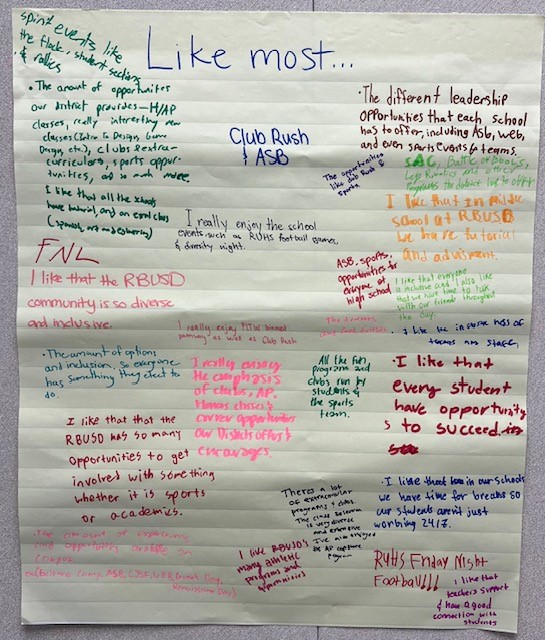 Like most...
spirit events like
the flock, student section,
& rallies
• The amount of opportunites
our district provides - H/AP
classes, really interesting new
classes (Intro to Design, Game
Design, etc.), clubs & extra-
curriculars, sports oppur-
tunities, and so much more.
I like that all the schools
have tutorial, and an enrol class
Club Rush
& ASB
The opportunities
like club Rush &
sports
• The different leadership
opportunities that each school
has to offer, including ASB, web,
and even sports events & teams.
SAC, Battle of Books,
and other
programs the district has to offer
I like that in middle
school at RBUSD
we have tutorial
and advisment.
I really enjoy the school
events such as RUHS football games,
& diversity night.
FNL
I like that the RBUSD
community is so diverse
and inclusive.
ASB, sports,
opportunities for
everyone at
high school
I like that everyone
is inclusive and I also like
that we have time to talk
with our friends throughout
the day.
I really enjoy
pathway as well as Club Rush
• I like the inclusiveness of
teams and staff.
• The amount of options
and inclusion, so everyone
has something they elect to
do.
I really enjoy
the emphasis
of clubs, AP,
Honors classes &
career opportunities
our Districts offers &
encourages.
All the fun,
programs and
clubs run by
students &
the sports
team.
• I like that
every student
have opportunity
s to succeed.
I like that that the
RBUSD has so many
opportunities to get
involved with something
whether it is sports
or academics.
Theres a lot
of extracurricular
programs & clubs.
The class selection
is very diverse
and extensive
I've also enjoyed
the AP capstone
program
• I like that in our schools
we have time for breaks so
our students aren't just
working 24/7.
The amount of
and opportunities available on
campus
I like RBUSD's
many athletic
programs and
opportunities
RUHS Friday Night
Football!!!
I like that
teachers support
& have a good
connection with
students